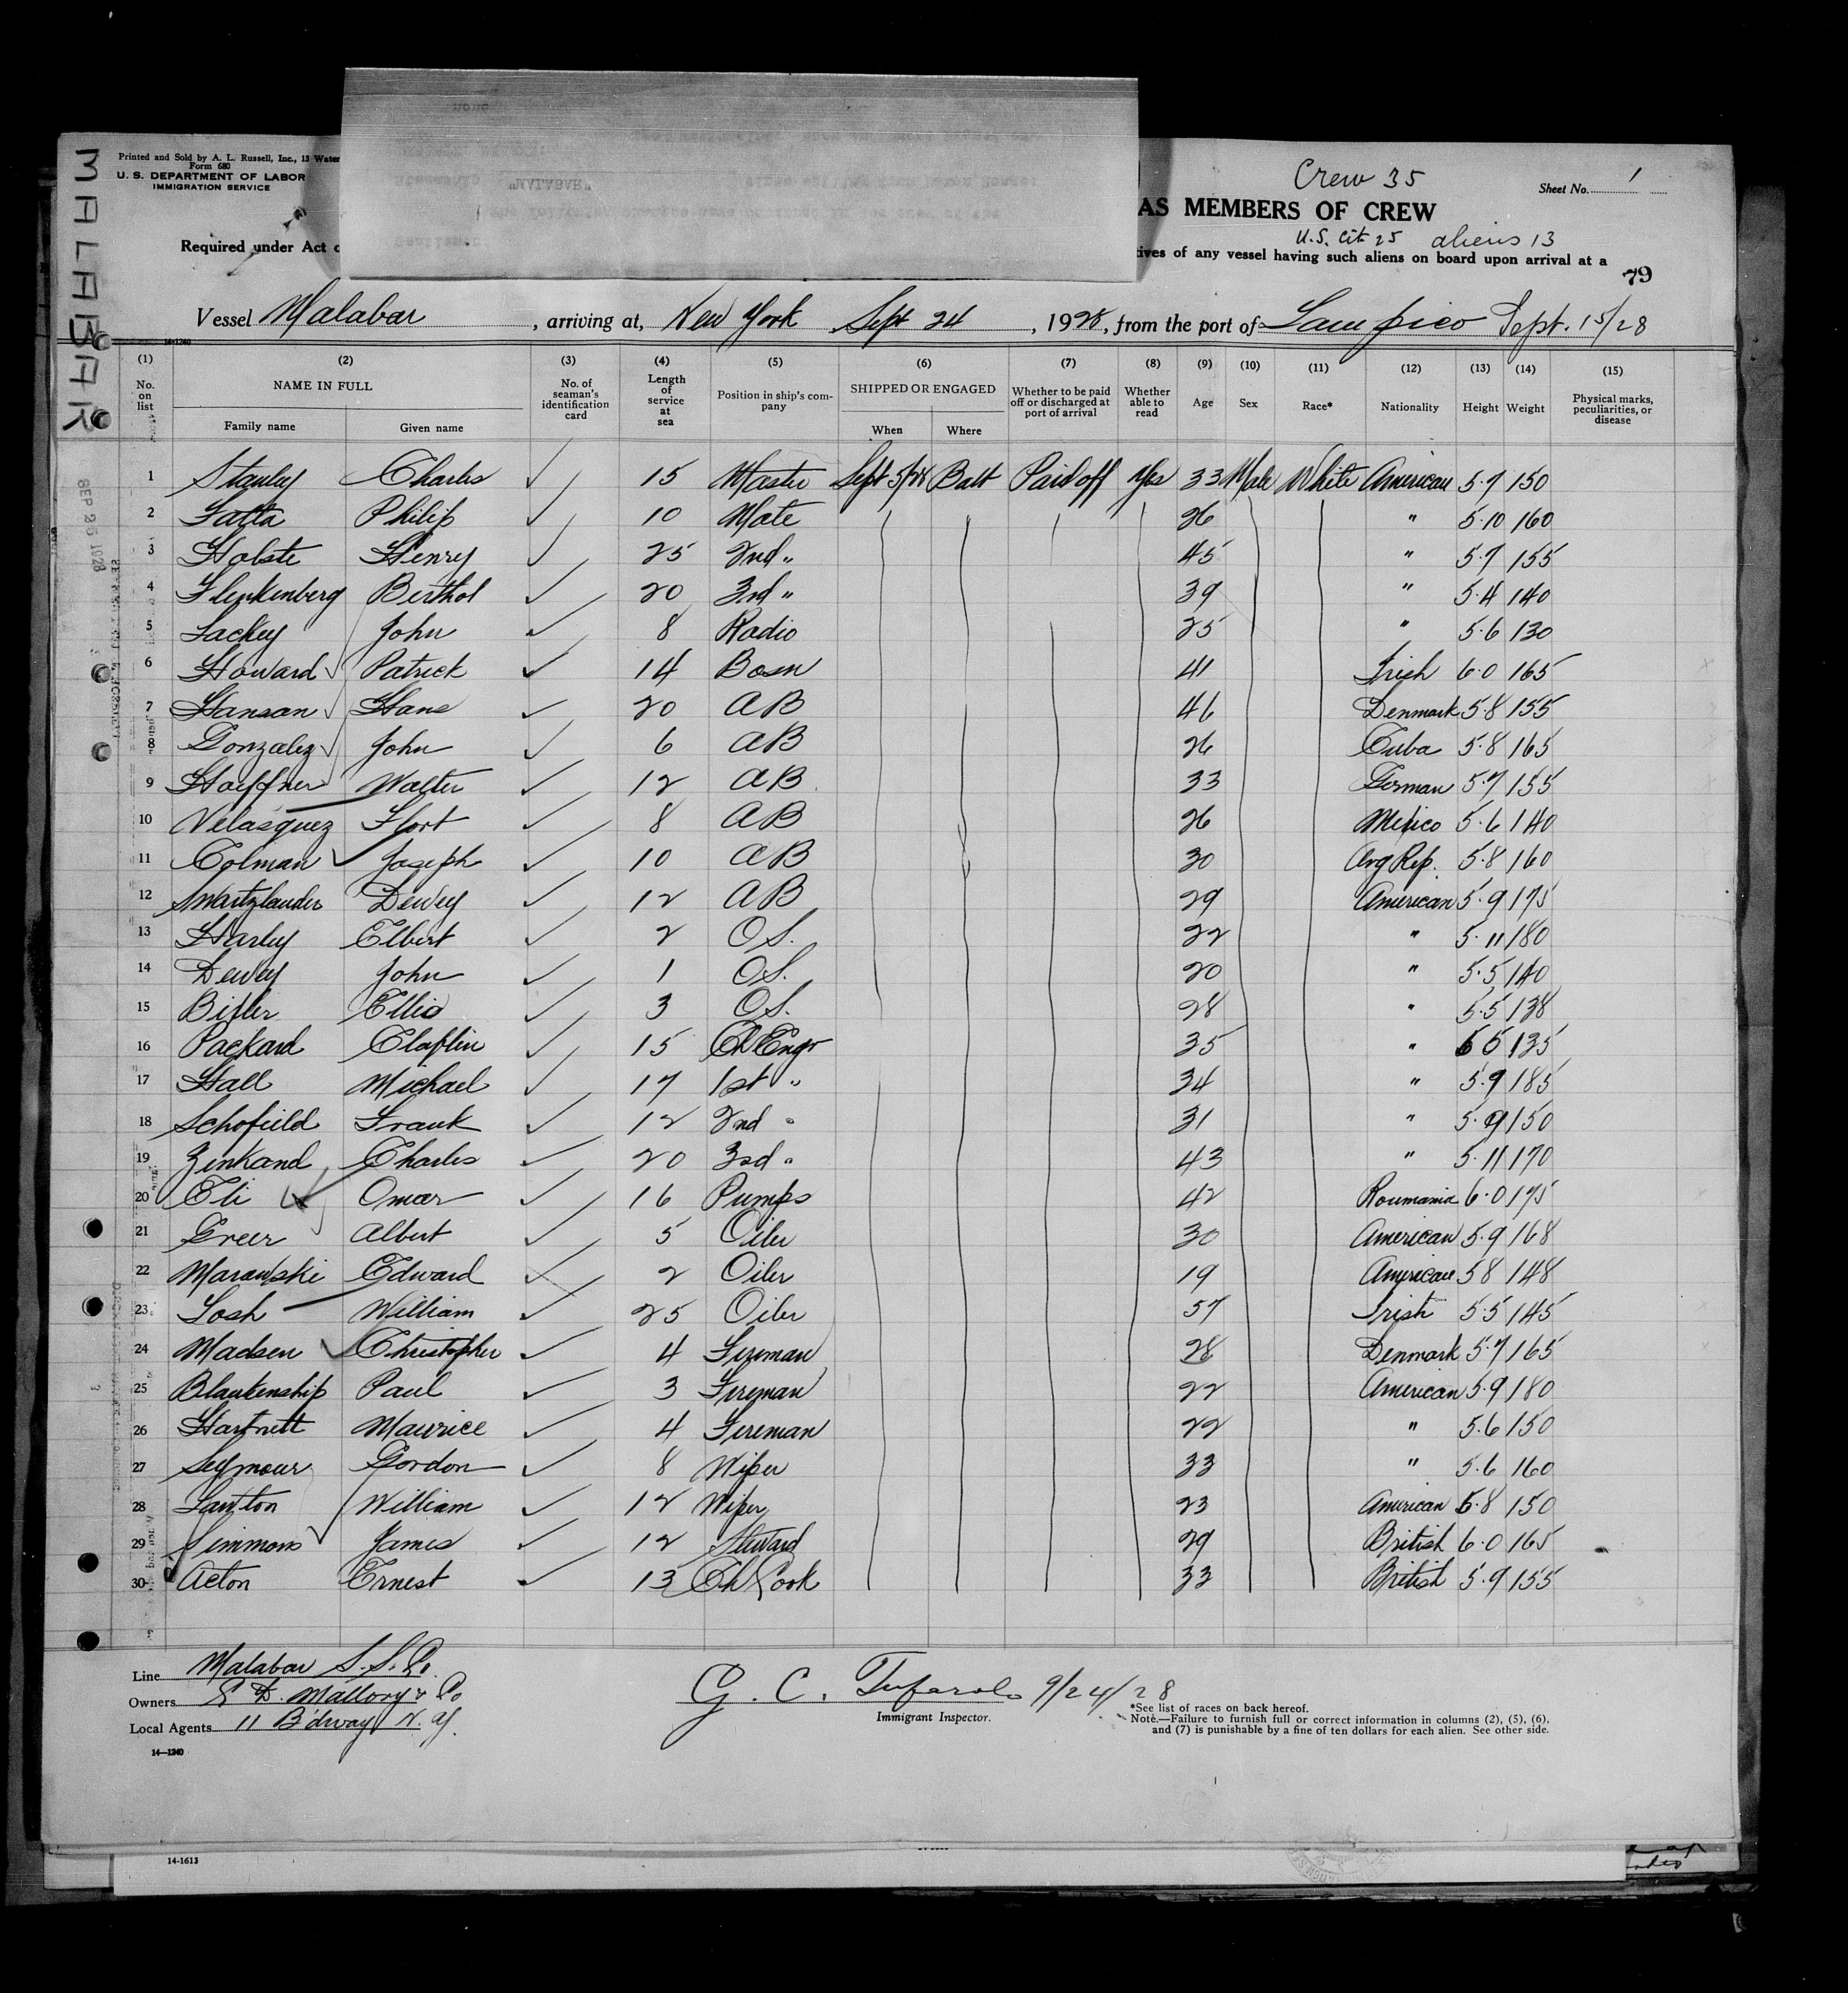 MALABAR
Printed and Sold by A. L. Russell, Inc., 13 Water
Form 680
U. S. DEPARTMENT OF LABOR
IMMIGRATION SERVICE
"MALABAR"
Crew 35
Sheet No. 1
AS MEMBERS OF CREW
U.S. Cit 25 aliens 13
Required under Act
tives of any vessel having such aliens on board upon arrival at a
79
Vessel Malabar, arriving at, New York Sept 24, 1928, from the port of Tampico Sept. 15/28
14-1240
(1) (2) (3) (4) (5) (6) (7) (8) (9) (10) (11) (12) (13) (14) (15)
No. on list NAME IN FULL Family name Given name No. of seaman's identification card Length of service at sea Position in ship's company SHIPPED OR ENGAGED When Where Whether to be paid off or discharged at port of arrival Whether able to read Age Sex Race* Nationality Height Weight Physical marks, peculiarities, or disease
SEP 26 1928
1 Stanley Charles ✓ 15 Master Sept 5/28 Balt Paid off Yes 33 Male White American 5.7 150
2 Fatta Philip ✓ 10 Mate 26 " 5.10 160
3 Holste Henry ✓ 25 2nd " 45 " 5.7 155
4 Flenkenberg Berthol ✓ 20 3rd " 39 " 5.4 140
5 Lackey John ✓ 8 Radio 25 " 5.6 130
6 Howard Patrick ✓ 14 Bosn 41 Irish 6.0 165
7 Hansan Hans ✓ 20 AB 46 Denmark 5.8 155
8 Gonzalez John ✓ 6 AB 26 Cuba 5.8 165
9 Haeffner Walter ✓ 12 AB 33 German 5.7 155
10 Velasquez Flort ✓ 8 AB 26 Mexico 5.6 140
11 Colman Joseph ✓ 10 AB 30 Arg Rep. 5.8 160
12 Swartzlander Dewey ✓ 12 AB 29 American 5.9 175
13 Harley Elbert ✓ 2 O S. 22 " 5.11 180
14 Dewey John ✓ 1 OS. 20 " 5.5 140
15 Bixler Ellis ✓ 3 OS. 28 " 5.5 138
16 Packard Claflin ✓ 15 Ch Engr 35 " 6 5 135
17 Hall Michael ✓ 17 1st " 34 " 5.9 185
18 Schofield Frank ✓ 12 2nd " 31 " 5.9 150
19 Zinkand Charles ✓ 20 3rd " 43 " 5.11 170
20 Eli Omar ✓ 16 Pumps 42 Roumania 6.0 175
21 Greer Albert ✓ 5 Oiler 30 American 5.9 168
22 Marowski Edward ✓ 2 Oiler 19 American 5 8 148
23 Losh William ✓ 25 Oiler 57 Irish 5.5 145
24 Madsen Christopher ✓ 4 Fireman 28 Denmark 5.7 165
25 Blankenship Paul ✓ 3 Fireman 22 American 5.9 180
26 Hartnett Maurice ✓ 4 Fireman 22 " 5.6 150
27 Seymour Gordon ✓ 8 Wiper 33 " 5.6 160
28 Lawton William ✓ 12 Wiper 23 American 5.8 150
29 Simmons James ✓ 12 Steward 29 British 6.0 165
30 Acton Ernest ✓ 13 Ch Cook 33 British 5.9 155
Line Malabar S.S. Co.
Owners E D. Mallory & Co
Local Agents 11 B'dway N.Y.
14—1240
G. C. Tufarolo 9/24/28
Immigrant Inspector.
*See list of races on back hereof.
Note.—Failure to furnish full or correct information in columns (2), (5), (6),
and (7) is punishable by a fine of ten dollars for each alien. See other side.
14-1613